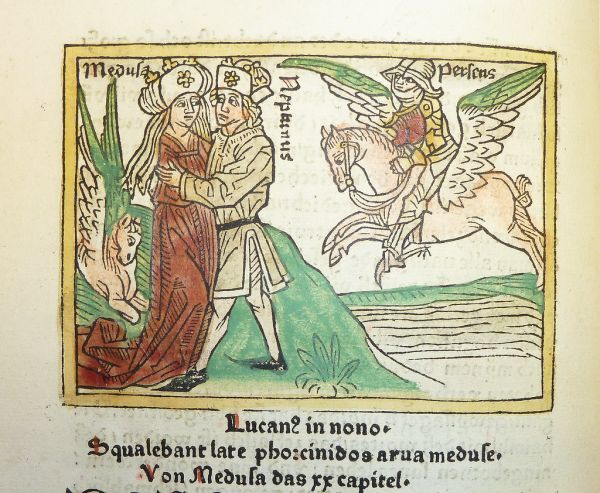 Medusa
Neptunus
Perseus
Lucanꝰ in nono.
Squalebant late phorcinidos arua meduse.
Von Medusa das xx capitel.